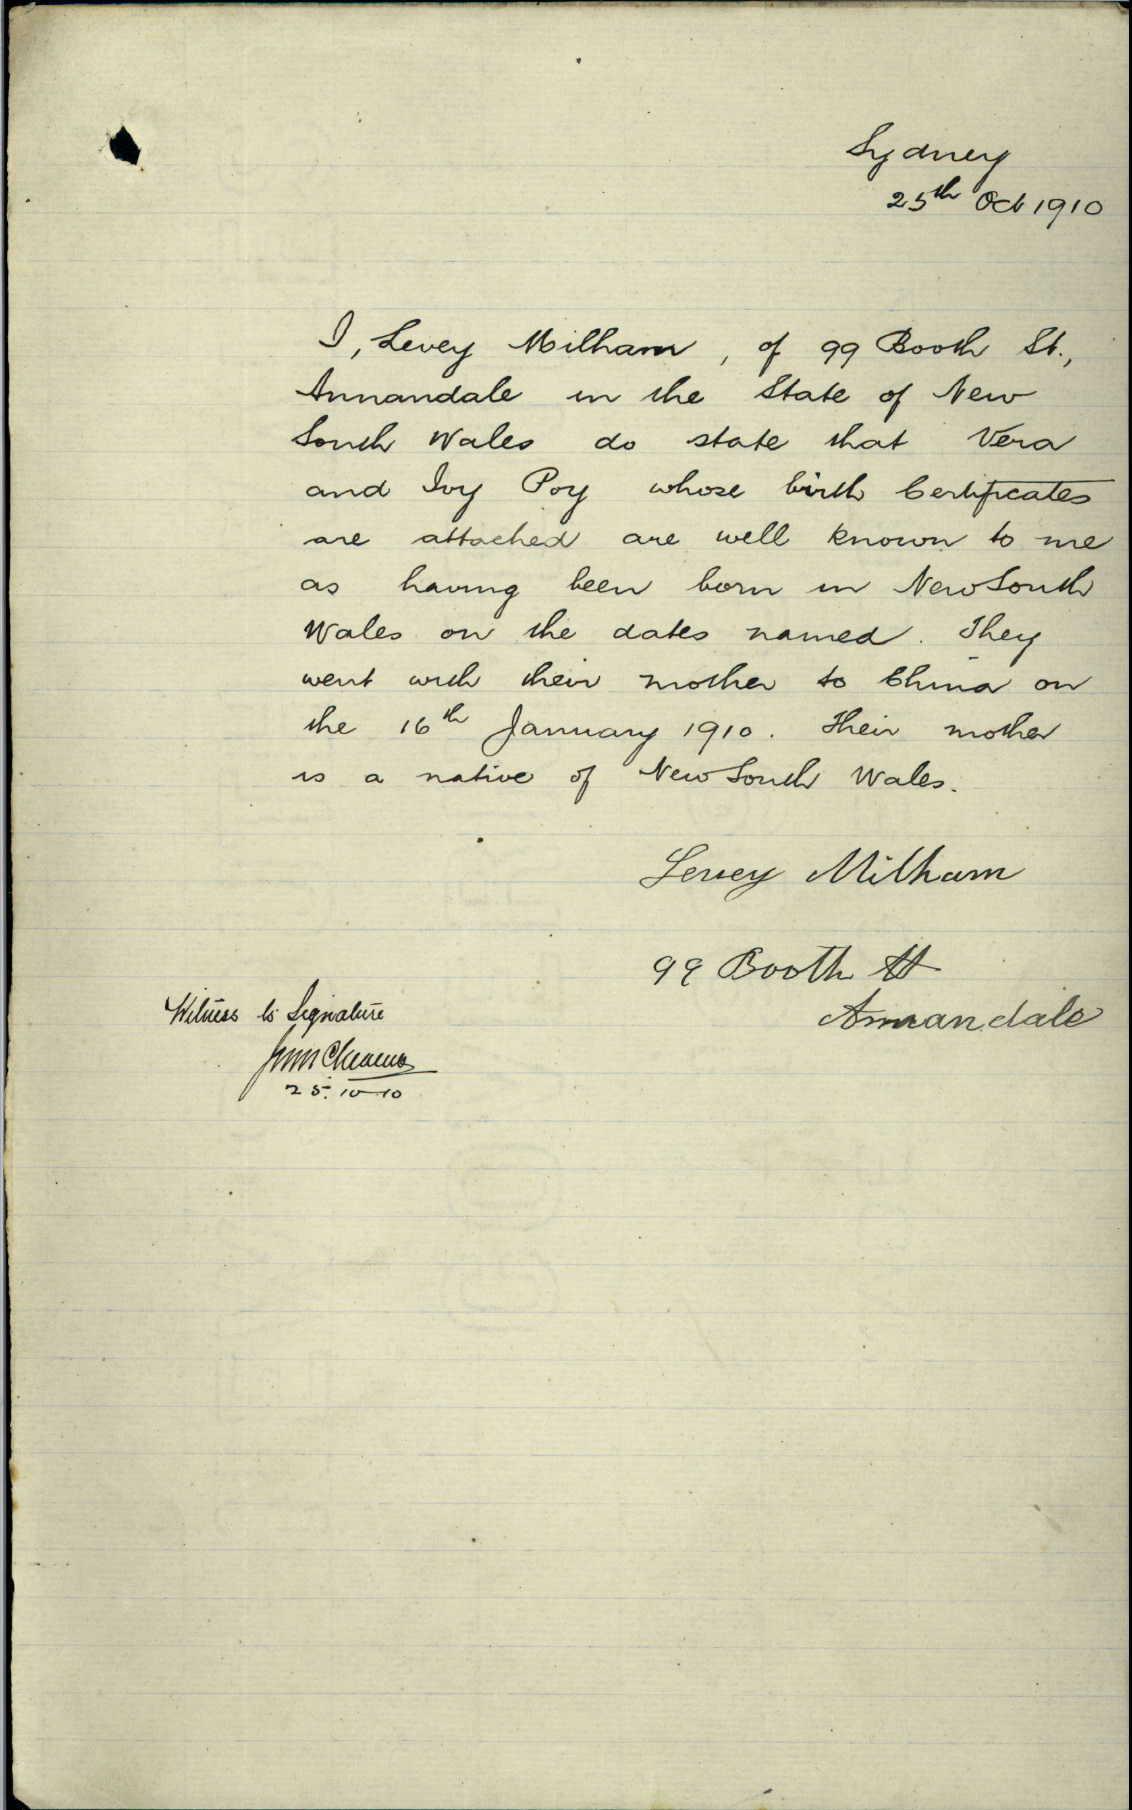 Sydney
25th Oct 1910
I, Levey Milham, of 99 Booth St.,
Annandale in the State of New
South Wales do state that Vera
and Ivy Poy whose birth Certificates
are attached are well known to me
as having been born in New South
Wales on the dates named. They
went with their mother to China on
the 16th January 1910. Their mother
is a native of New South Wales.
Levey Milham
99 Booth St
Annandale
Witness to Signature
25.10.10